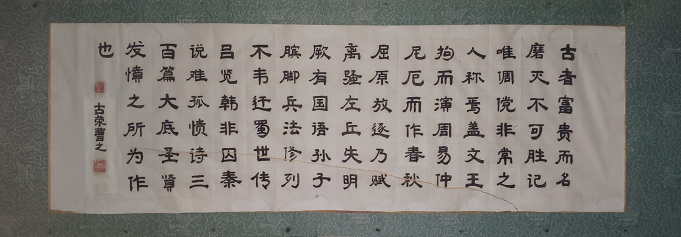 古者富贵而名
磨灭不可胜记
唯倜傥非常之
人称焉盖文王
拘而演周易仲
尼厄而作春秋
屈原放逐乃赋
离骚左丘失明
厥有国语孙子
膑脚兵法修列
不韦迁蜀世传
吕览韩非囚秦
说难孤愤诗三
百篇大底圣贤
发愤之所为作
也
古荥曹之